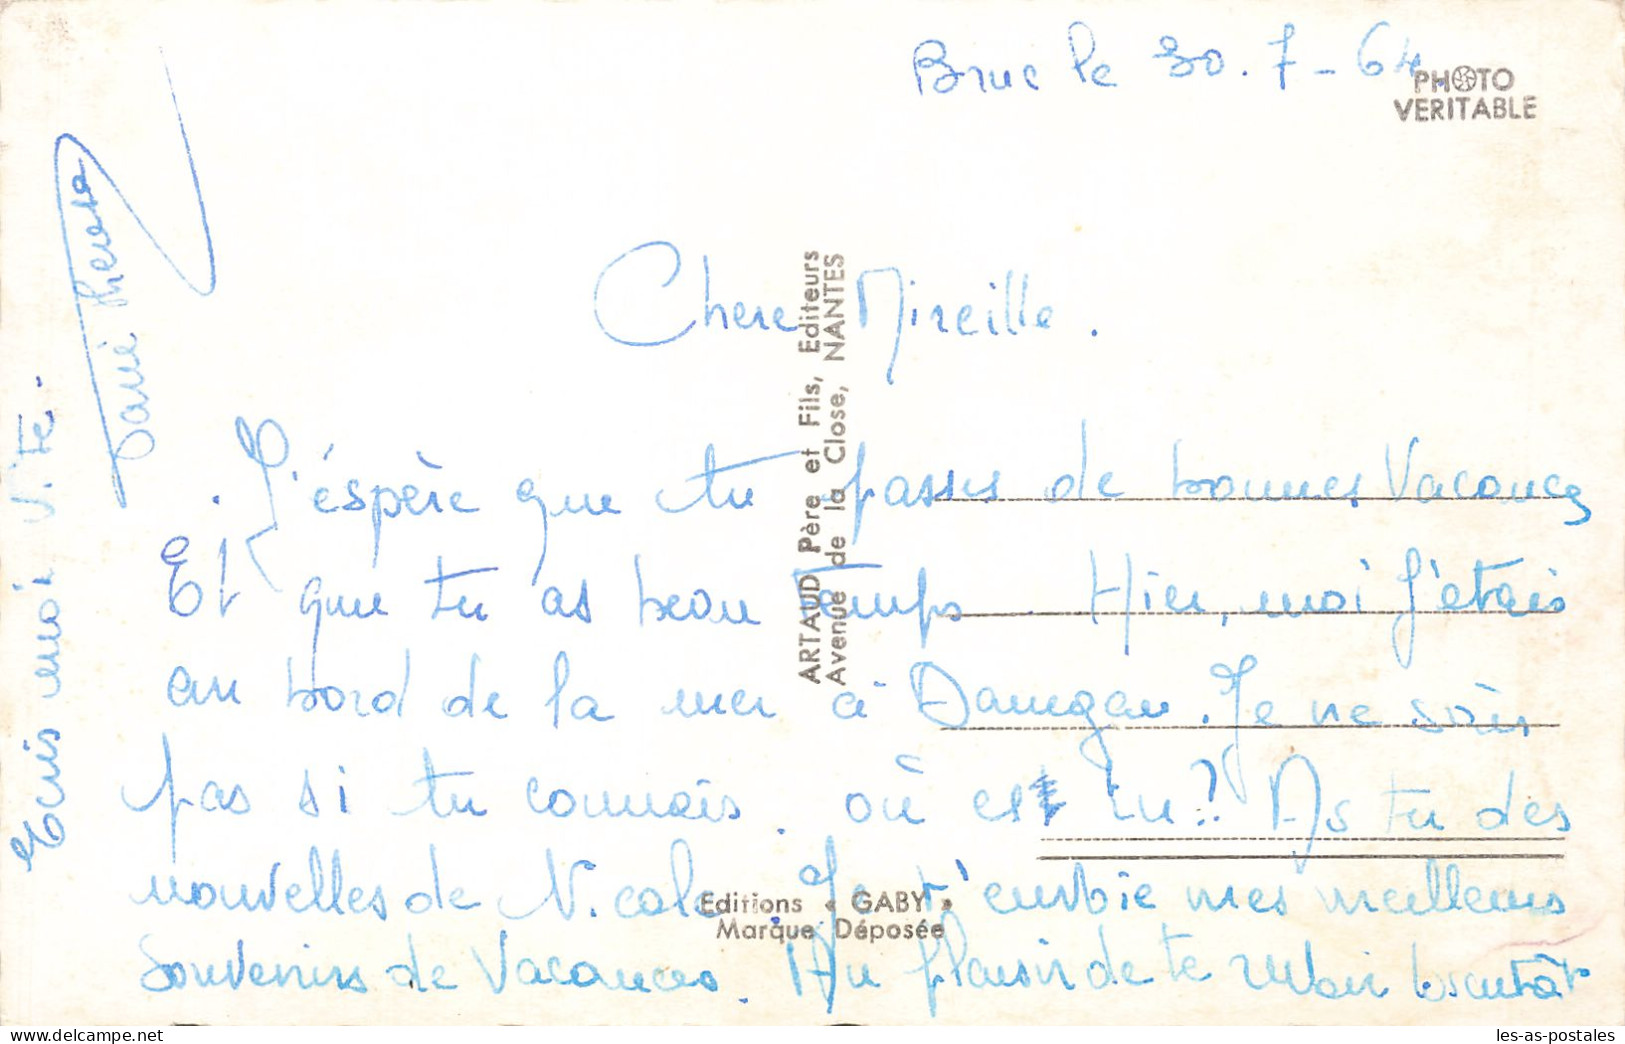 Bruc le 30.7-64
PHOTO
VERITABLE
Chere Mireille.
J'éspère que tu passes de bonnes Vacances
Et que tu as beau temps. Hier, moi j'étais
au bord de la mer à Damgan. Je ne sais
pas si tu connais. où es tu? As tu des
nouvelles de Nicole. Je t'envoie mes meilleurs
Souvenirs de Vacances. Au plaisir de te revoir bientôt
Ecris moi vite.
ARTAUD Père et Fils, Editeurs
Avenue de la Close, NANTES
Editions « GABY »
Marque Déposée
les-as-postales